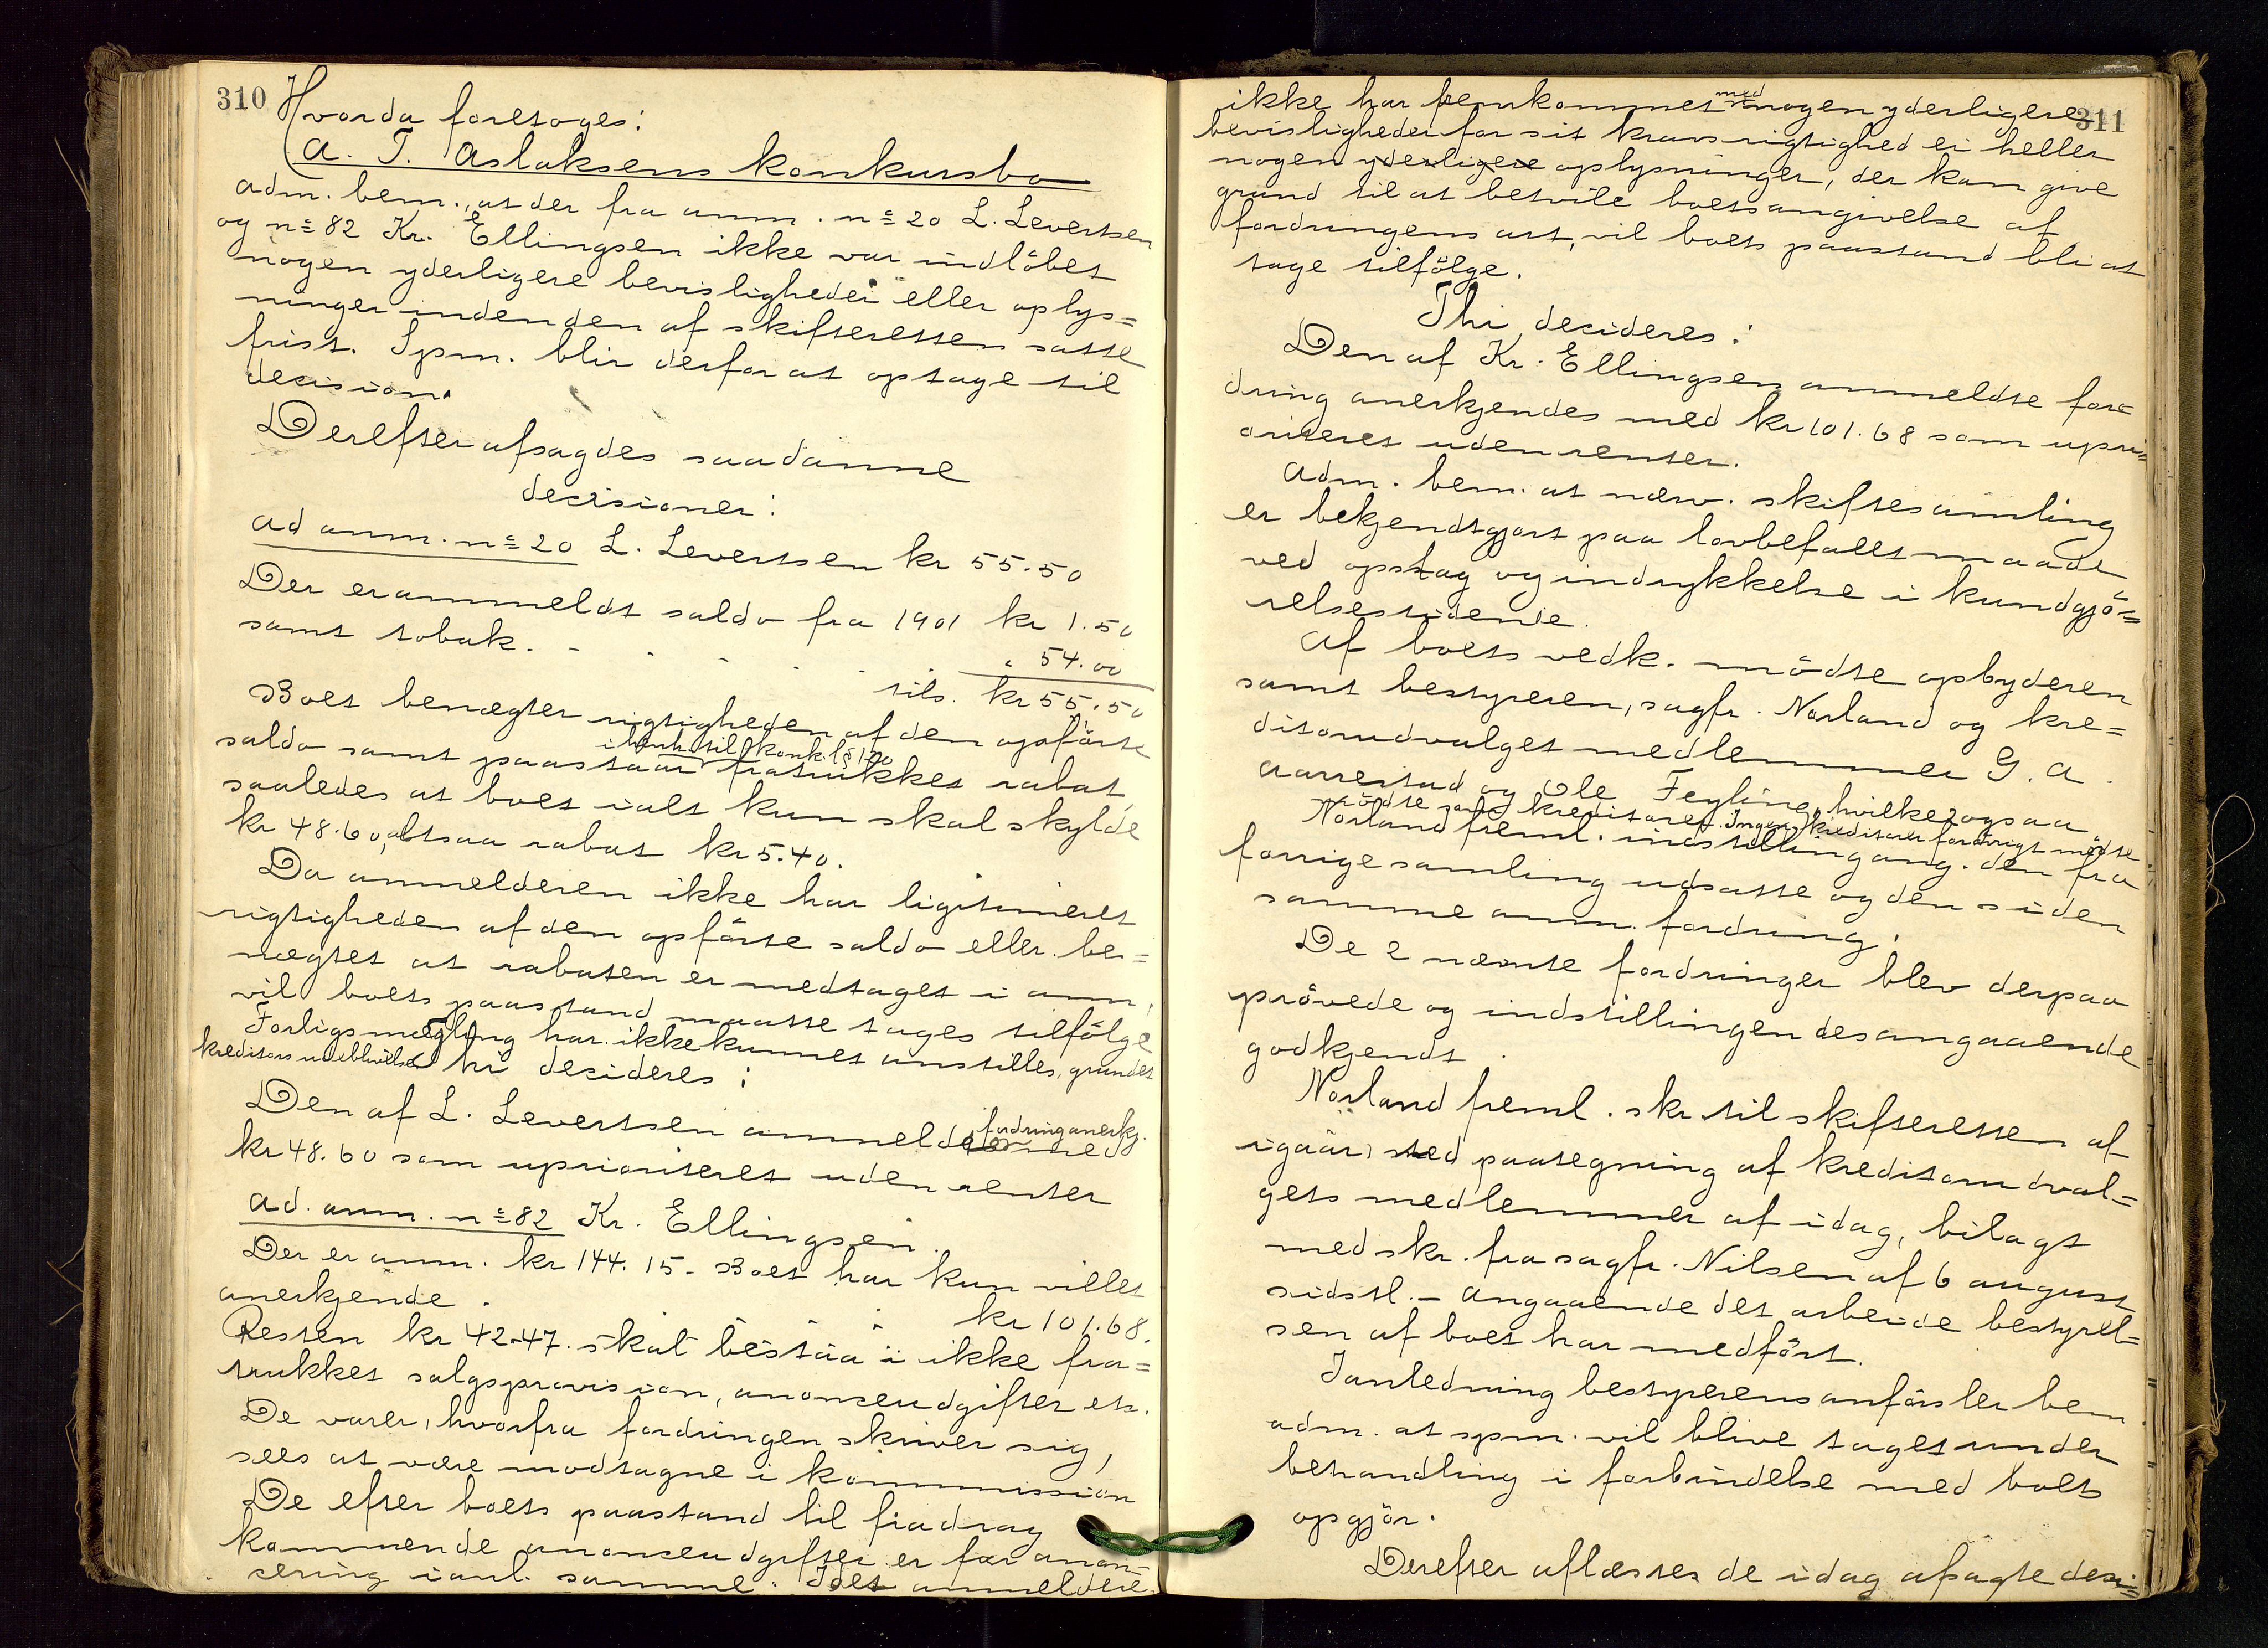 310
Hvorda foretoges:
A. T. Aslaksens konkursbo
Adm. bem., at der fra anm. no 20 L. Levertsen
og no 82 Kr. Ellingsen ikke var indløbet
nogen yderligere bevisligheder eller oplys=
ninger inden den af skifteretten satte
frist. Spm. blir derfor at optage til
decision.
Derefter afsagdes saadanne
decisioner:
ad anm. no 20 L. Levertsen kr 55.50
Der er anmeldt saldo fra 1901 kr 1.50
samt tobak. - - - - - " 54.00
tils. kr 55.50
Boet benægter rigtigheden af den opførte
i henh. til konk.l § 120
saldo samt paastaar fratrukket rabat,
saaledes at boet ialt kun skal skylde
kr 48.60, altsaa rabat kr 5.40.
Da anmelderen ikke har ligitimeret
rigtigheden af den opførte saldo eller be=
nægtet at rabaten er medtaget i anm.,
vil boets paastand maatte tages tilfølge
Forligsmægling har ikke kunnet anstilles, grundet
kreditors udeblivelse Thi decideres:
Den af L. Levertsen anmeldte fordring anerkj. med
kr 48.60 som uprioriteret uden renter
ad. anm. no 82 Kr. Ellingsen.
Der er anm. kr 144.15. Boet har kun villet
anerkjende . - - - kr 101.68.
Resten kr 42.47. skal bestaa i ikke fra=
trukket salgsprovision, anonceudgifter etc.
De varer, hvorfra fordringen skriver sig,
sees at være modtagne i kommission
De efter boets paastand til fradrag
kommende anonceudgifter er for anon=
cering i anl. samme. Idet anmelderen
311
ikke har fremkommet med nogen yderligere
bevisligheder for sit kravs rigtighed ei heller
nogen yderligere oplysninger, der kan give
grund til at betvile boets angivelse af
fordringens art, vil boets paastand bli at
tage tilfølge.
Thi decideres:
Den af Kr. Ellingsen anmeldte for=
dring anerkjendes med kr 101.68 som upri=
oriteret uden renter.
Adm. bem. at nærv. skiftesamling
er bekjendtgjort paa lovbefallet maade
ved opstag og indrykkelse i kundgjø=
relsestidende.
Af boets vedk. mødte opbyderen
samt bestyreren, sagfr. Norland og kre=
ditorudvalget medlemmer G. A.
Aarrestad og Ole Feyling, hvilke ogsaa
mødte som kreditorer. Ingen kreditorer forøvrigt mødte.
Norland freml. indstilling ang. den fra
forrige samling udsatte og den siden
samme anm. fordring.
De 2 nævnte fordringer blev derpaa
prøvede og indstillingen desangaaende
godkjendt.
Norland freml. skr. til skifteretten af
igaar, med paategning af kreditorudval=
gets medlemmer af idag, bilagt
med skr. fra sagfr. Nilsen af 6 august
sidstl. - angaaende det arbeide bestyrel=
sen af boet har medført.
I anledning bestyrerens anførsler bem
adm. at spm. vil blive taget under
behandling i forbindelse med boets
opgjør.
Derefter aflæstes de idag afsagte deci=